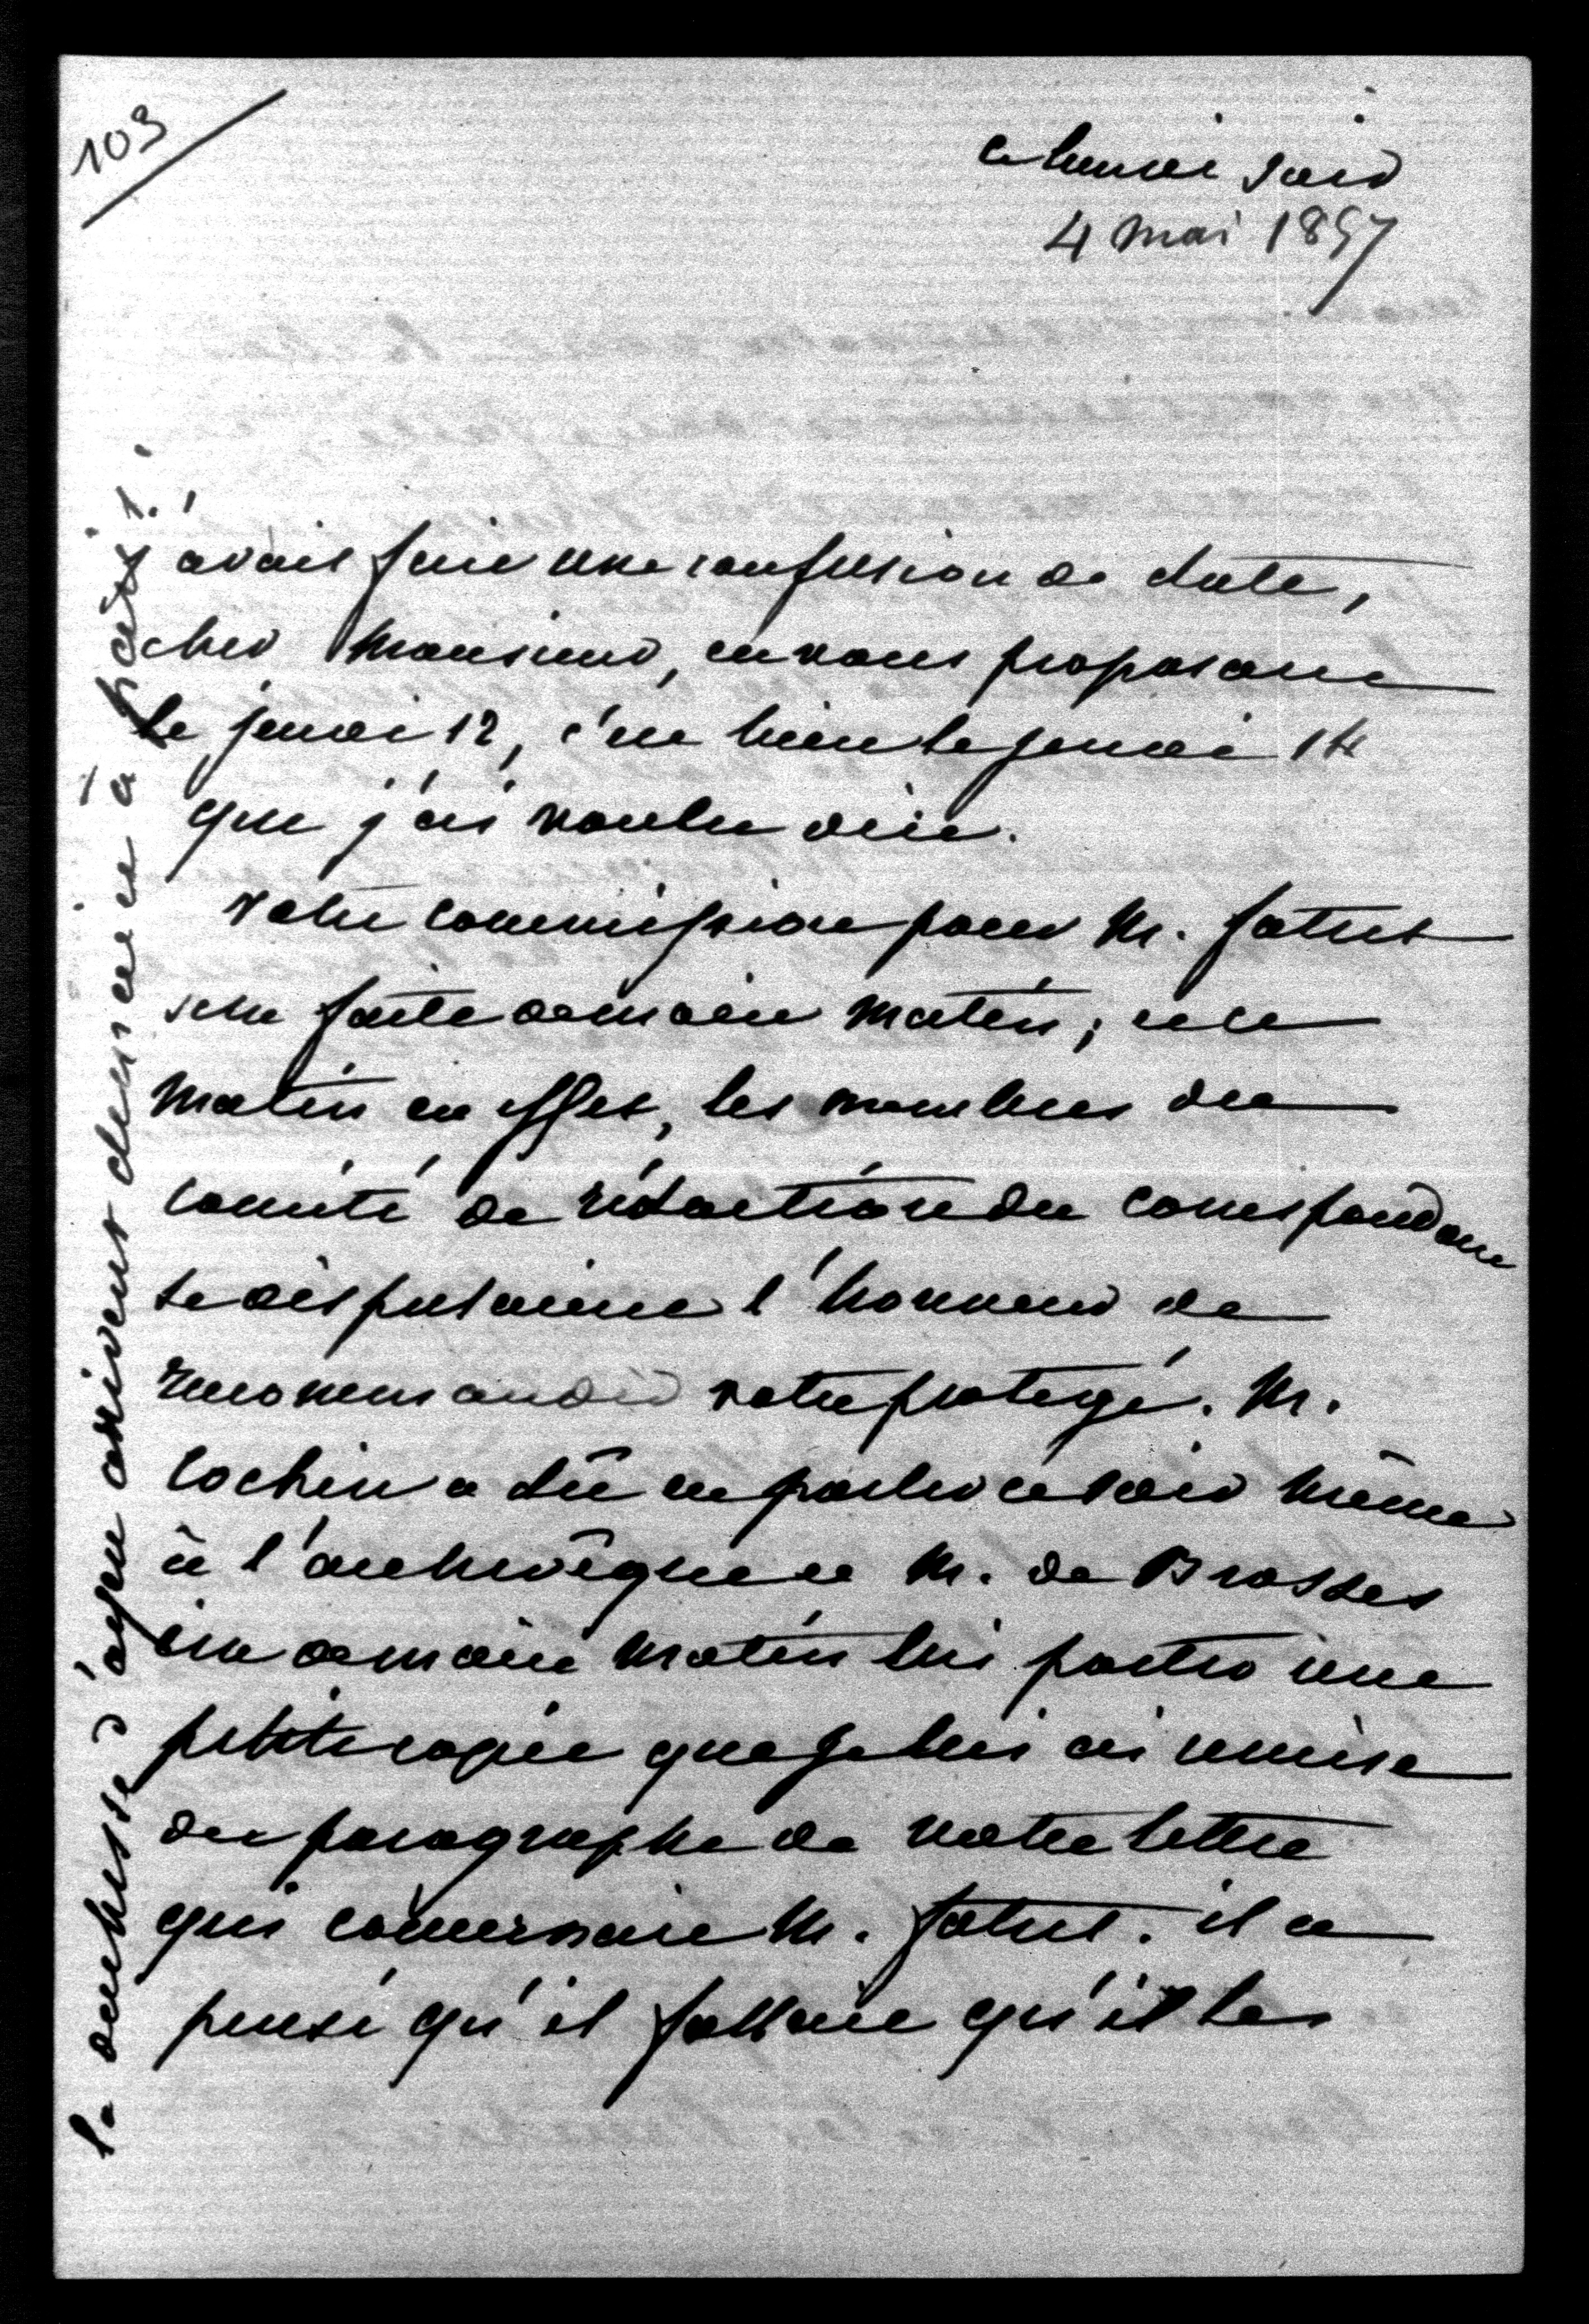 103
ce lundi soir
4 mai 1857
j'avais fait une confusion de date,
cher Monsieur, en vous proposant
le jeudi 12, c'est bien le jeudi 14
que j'ai voulu dire.
votre commission pour M. fatus
sera faite demain matin; ce
matin en effet, les membres du
comité de rédaction du correspondant
se disputaient l'honneur de
recommander votre protégé. M.
Cochin a dû en parler ce soir même
à l'archevêque et M. de Brosses
ira demain matin lui porter une
petite copie que je lui ai remise
du paragraphe de votre lettre
qui concernait M. fatus. il a
pensé qu'il fallait qu'il les
la duchesse d'ayen arrivent demain à paris!